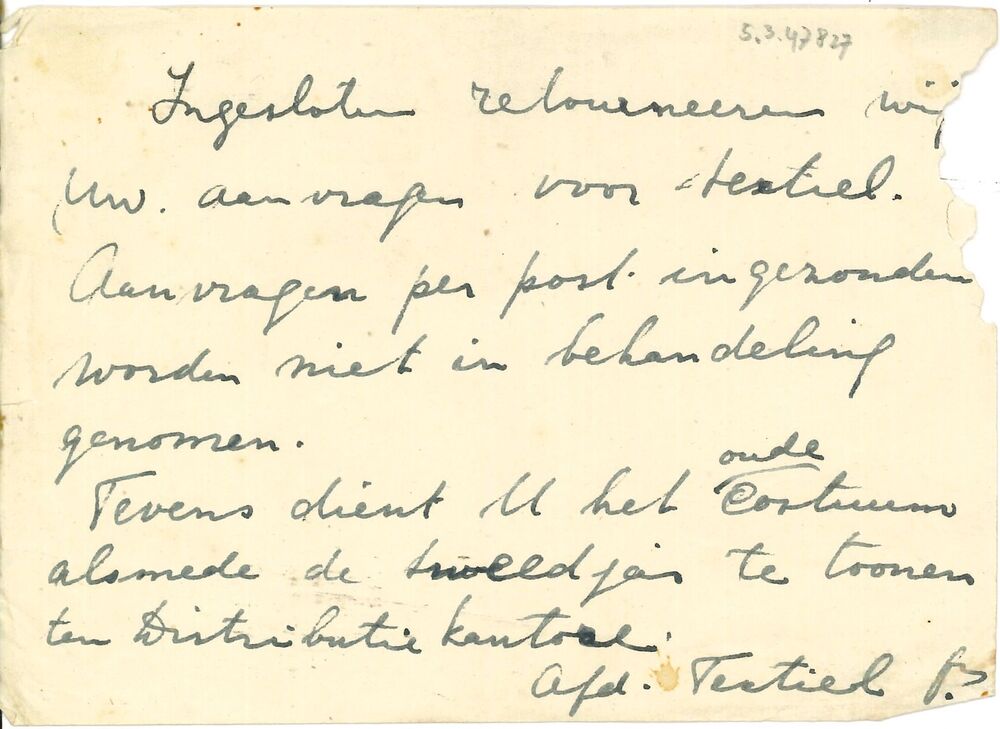 5.3.47827
Ingesloten retourneeren wij
Uw. aanvragen voor textiel.
Aanvragen per post ingezonden
worden niet in behandeling
genomen.
oude
Tevens dient U het Costuum
alsmede de tweedjas te toonen
ten Distributie kantore.
Afd. Textiel